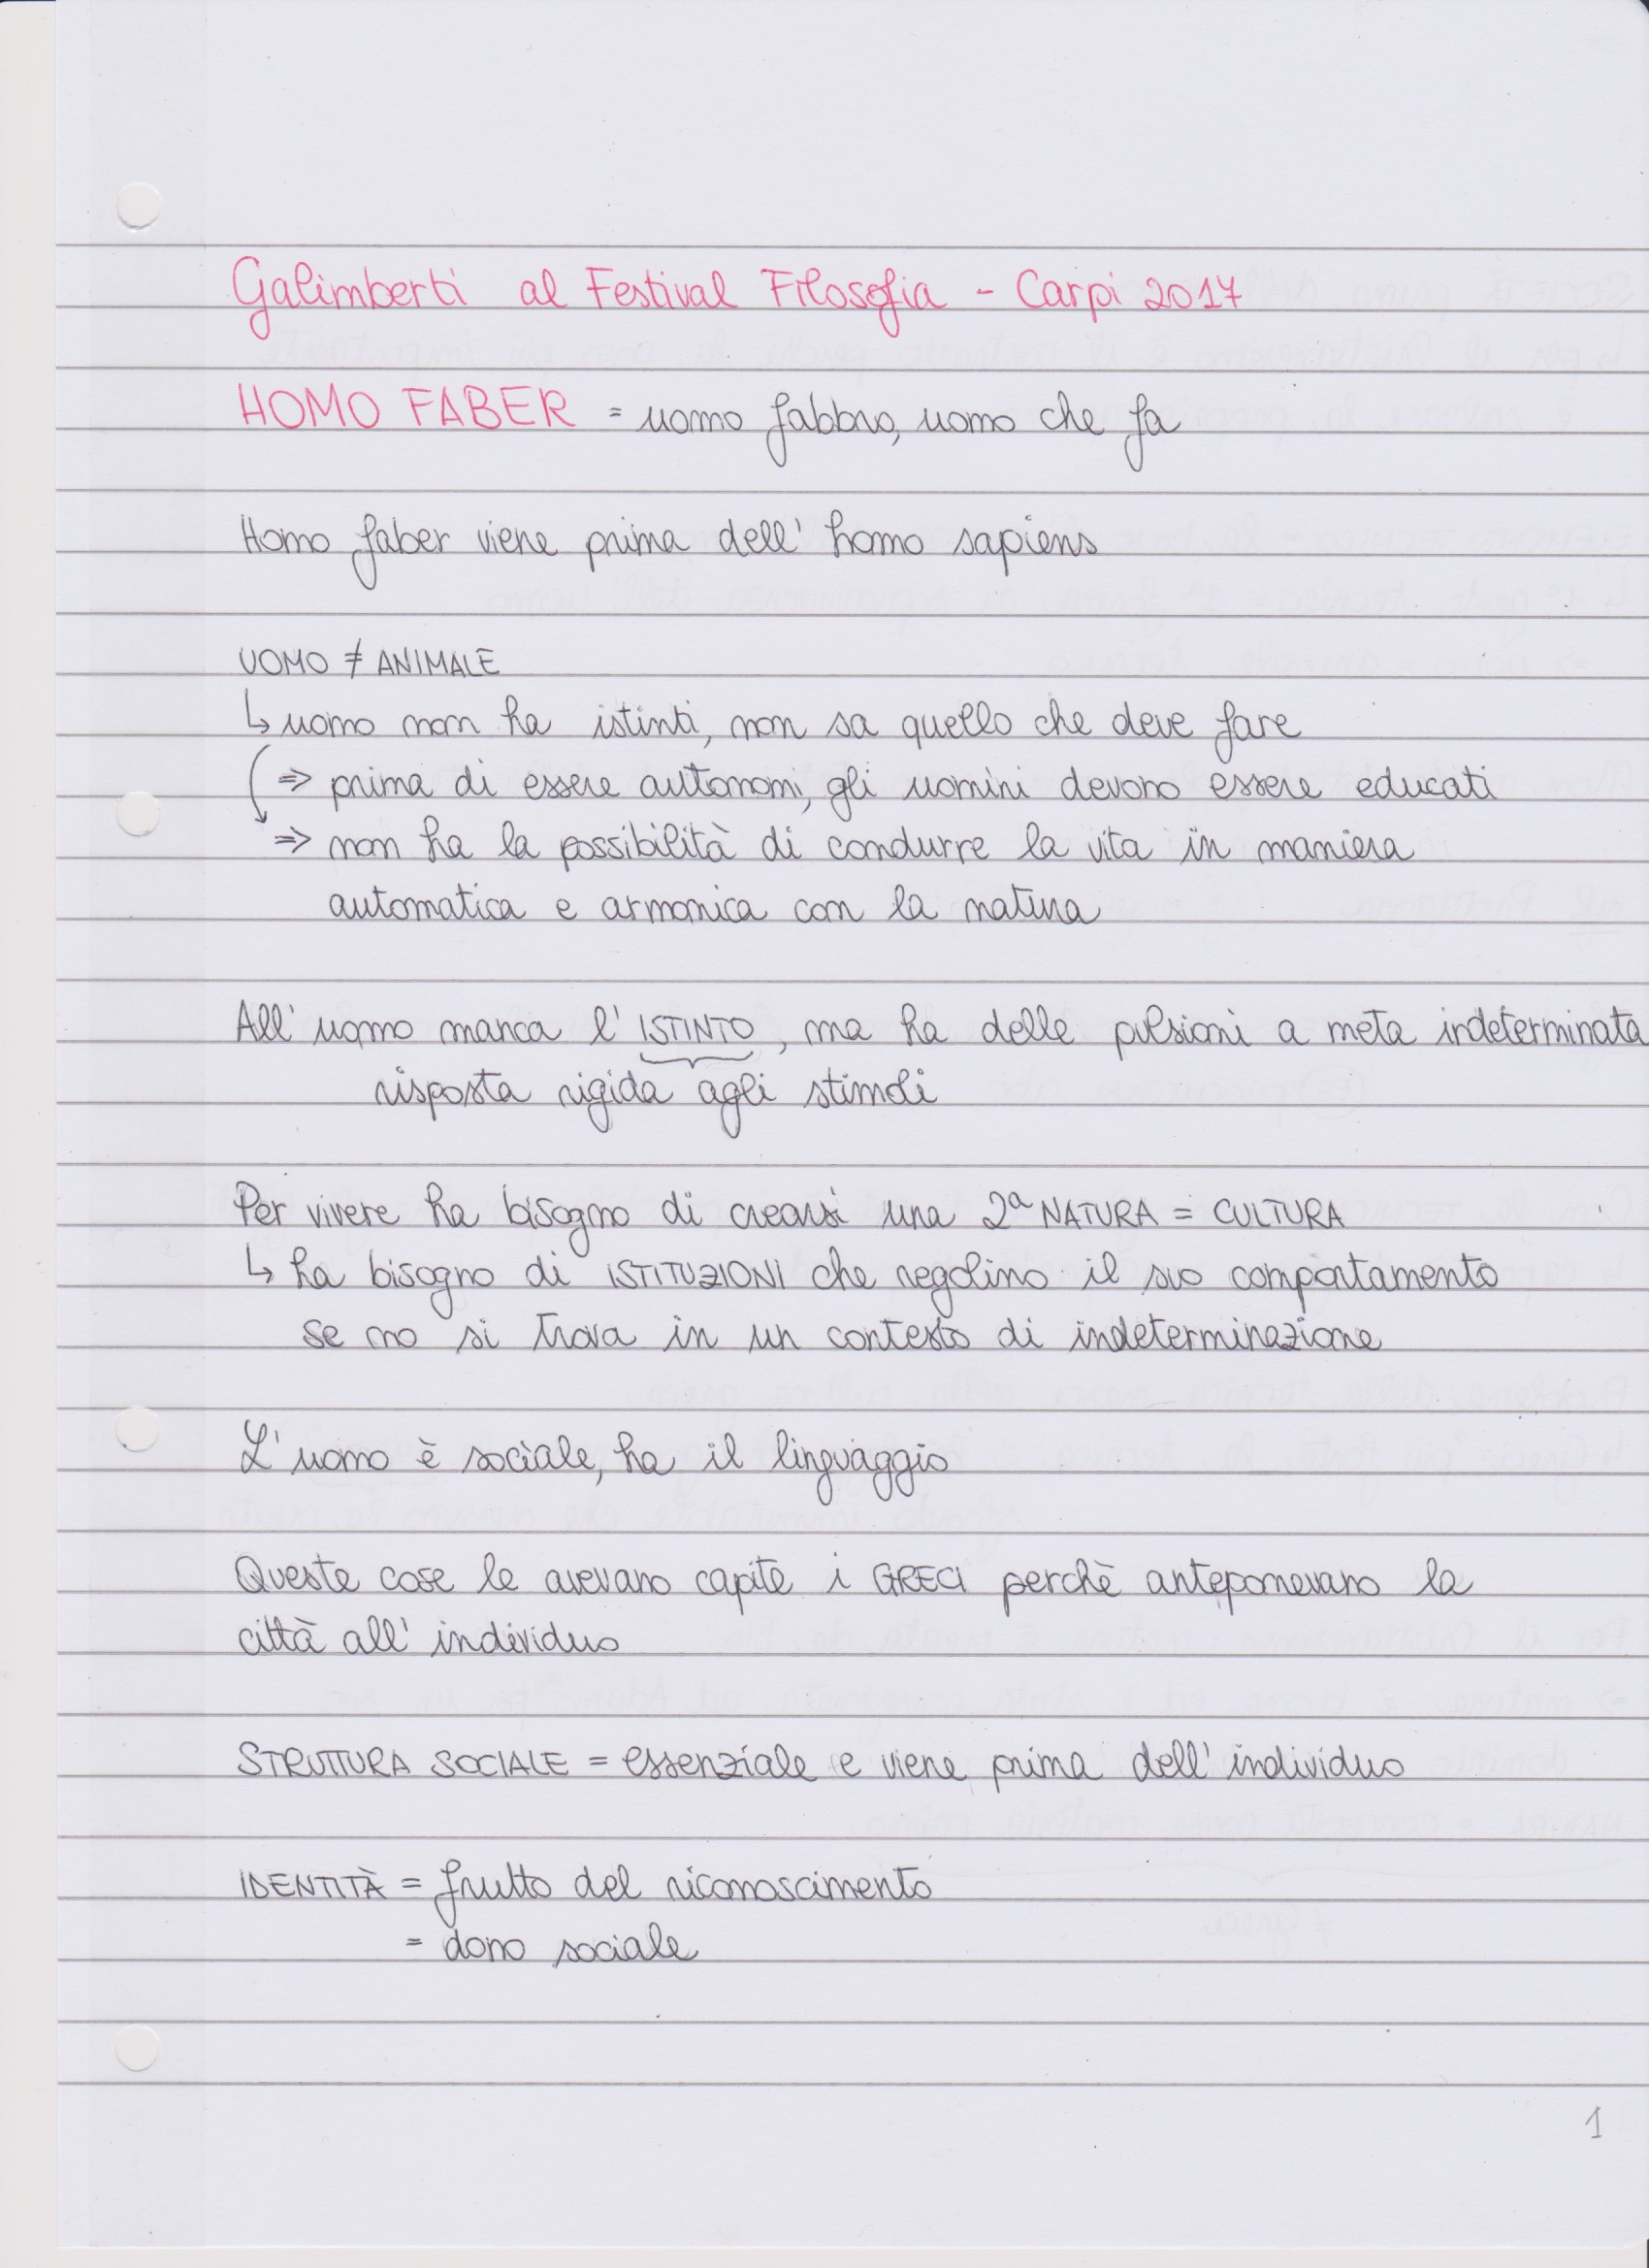 Galimberti al Festival Filosofia - Carpi 2017
HOMO FABER = uomo fabbro, uomo che fa
Homo faber viene prima dell' homo sapiens
UOMO ≠ ANIMALE
↳ uomo non ha istinti, non sa quello che deve fare
⇒ prima di essere autonomi, gli uomini devono essere educati
⇒ non ha la possibilità di condurre la vita in maniera
automatica e armonica con la natura
All' uomo manca l' ISTINTO, ma ha delle pulsioni a meta indeterminata
risposta rigida agli stimoli
Per vivere ha bisogno di crearsi una 2ª NATURA = CULTURA
↳ ha bisogno di ISTITUZIONI che regolino il suo comportamento
se no si trova in un contesto di indeterminazione
L' uomo è sociale, ha il linguaggio
Queste cose le avevano capite i GRECI perchè anteponevano la
città all' individuo
STRUTTURA SOCIALE = essenziale e viene prima dell' individuo
IDENTITÀ = frutto del riconoscimento
= dono sociale
1